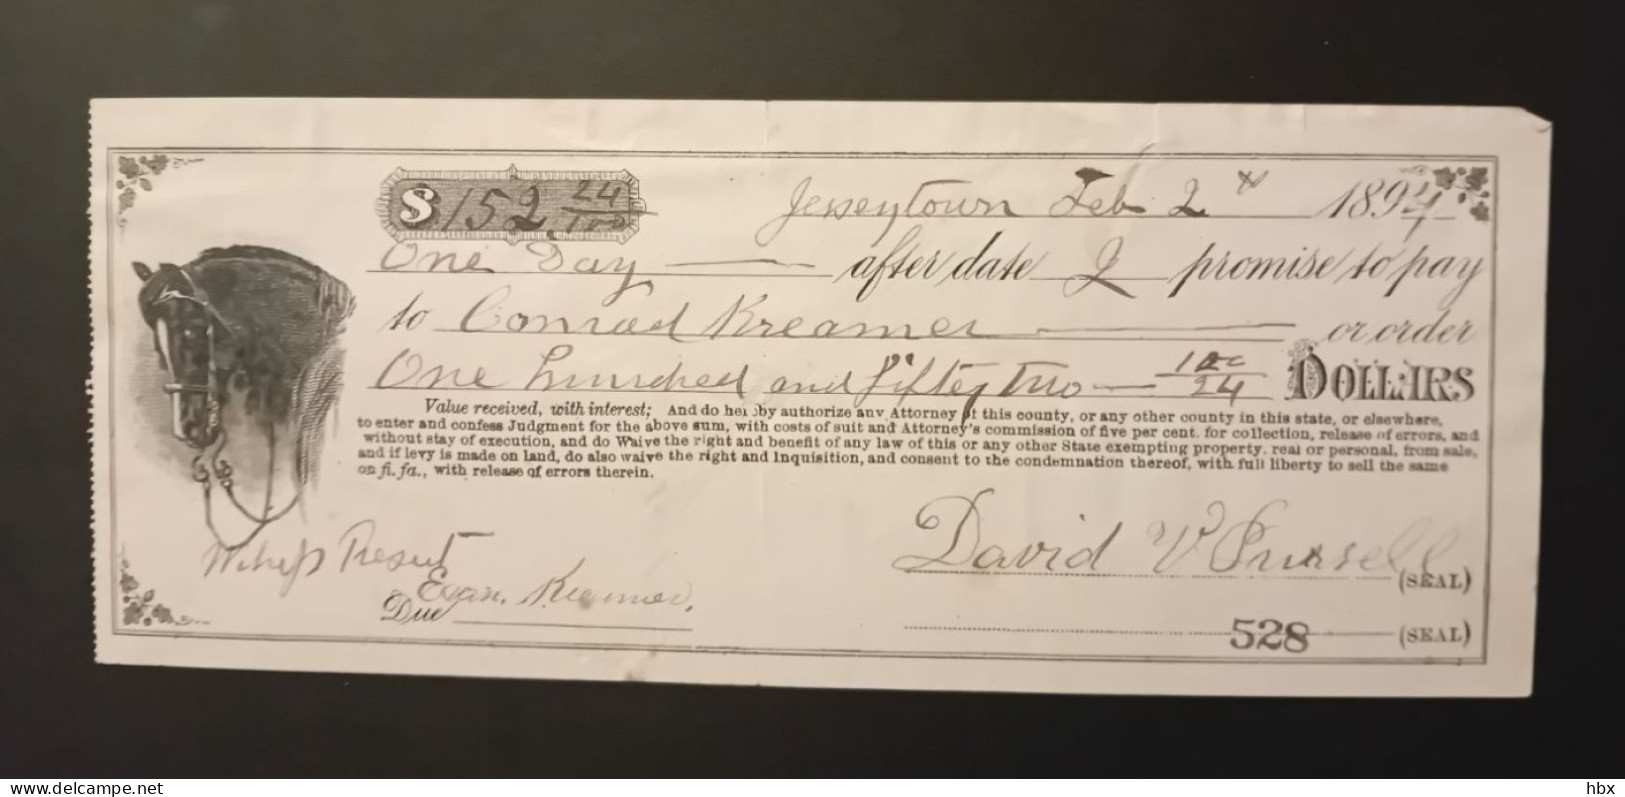 $152 24/100 Jerseytown Feb 2 1894
One Day after date I promise to pay
to Conrad Kreamer or order
One hundred and fifty two 100/24 DOLLARS
Value received, with interest; And do hereby authorize any Attorney of this county, or any other county in this state, or elsewhere,
to enter and confess Judgment for the above sum, with costs of suit and Attorney's commission of five per cent. for collection, release of errors, and
without stay of execution, and do Waive the right and benefit of any law of this or any other State exempting property, real or personal, from sale,
and if levy is made on land, do also waive the right and Inquisition, and consent to the condemnation thereof, with full liberty to sell the same
on fi. fa., with release of errors therein.
David V Pursell (SEAL)
Present
Evan. Kreamer.
Due
528 (SEAL)
www.delcampe.net
hbx